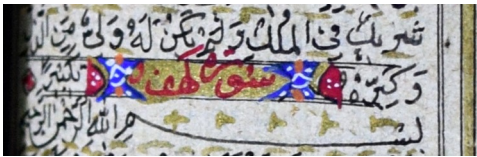 شَرِيكٌ فِي الْمُلْكِ وَلَمْ يَكُنْ لَهُ وَلِيٌّ مِنَ الذُّلِّ
وَكَبِّرْهُ سورة كهف تَكْبِيرًا
بسم الله الرحمن الرحيم